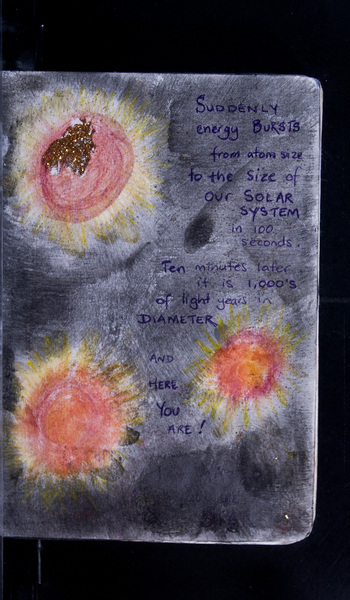 SUDDENLY
energy BURSTS
from atom size
to the size of
our SOLAR
SYSTEM
in 100
seconds.
Ten minutes later
it is 1,000's
of light years in
DIAMETER
AND
HERE
YOU
ARE!